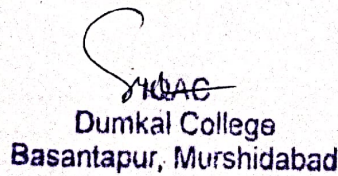 IQAC
Dumkal College
Basantapur, Murshidabad